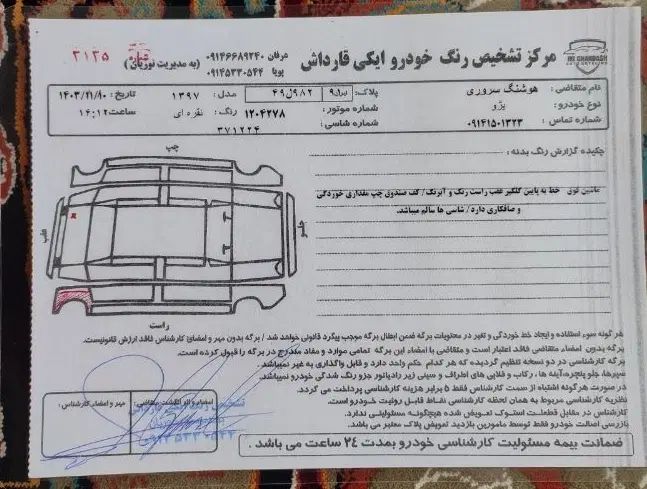 مرکز تشخیص رنگ خودرو ایکی قارداش
IKI GHARDASH
مرقان ۰۹۱۴۶۶۸۹۲۴۰
پویا ۰۹۱۴۵۳۳۰۵۴۴
(به مدیریت نوریان)
۳۱۳۵
نام متقاضی : هوشنگ سروری
پلاک:
۴۹ل۹۸۲
مدل : ۱۳۹۷
نوع خودرو: پژو
شماره موتور:
۱۲۰۴۲۷۸
رنگ : نقره ای
شماره تماس : ۰۹۱۴۱۵۰۱۳۲۳
شماره شاسی :
۳۷۱۲۲۴
ساعت:۱۴:۱۲
چکیده گزارش رنگ بدنه :
ماشین فوق خط به پایین گلگیر عقب راست رنگ و آبرنگ / کف صندوق چپ مقداری خوردگی
و صافکاری دارد / شاسی ها سالم میباشد.
چپ
عقب
جلو
راست
هر گونه سوء استفاده و ایجاد خط خوردگی و تغیر در محتویات برگه ضمن ابطال برگه موجب پیگرد قانونی خواهد شد / برگه بدون مهر و امضائ کارشناس فاقد ارزش قانونیست.
برگه بدون امضاء متقاضی فاقد اعتبار است و متقاضی با امضاء این برگه تمامی موارد و مفاد مندرج در برگه را قبول کرده است.
برگه کارشناسی در دو نسخه تنظیم گردیده که هر کدام حکم واحد دارد و قابل واگذاری به غیر نمیباشد.
سپرها، جلو پنجره، آینه ها ، رکاب و قلابی های اطراف و سینی زیر رادیاتور جزو رنگ شدگی خودرو نمیباشد.
در صورت هرگونه اشتباه از سمت کارشناس فقط ۵ برابر هزینه کارشناسی پرداخت می گردد.
نظریه کارشناسی مربوط به همان لحظه کارشناسی نقاط قابل رویت خودرو است.
کارشناس در مقابل قطعات استوک تعویض شده هیچگونه مسئولیتی ندارد.
بازرسی اصالت خودرو فقط توسط مامورین بازدید تعویض پلاک معتبر می باشد.
مهر و امضاء کارشناس:
ضمانت بیمه مسئولیت کارشناسی خودرو بمدت ۲۴ ساعت می باشد .